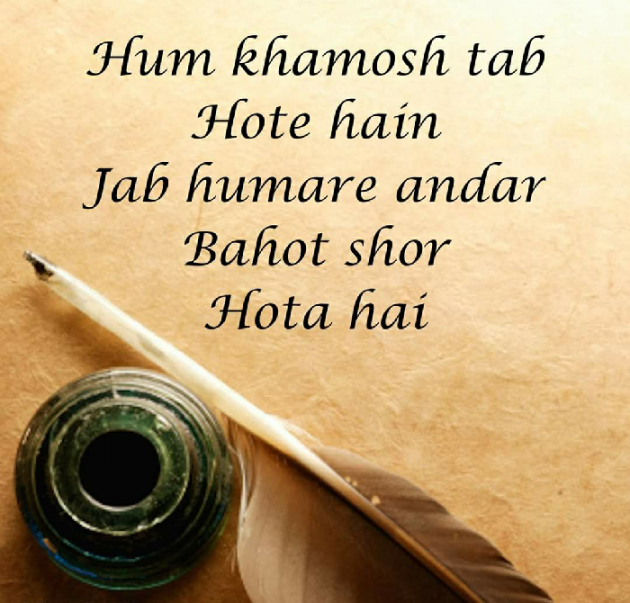 Hum khamosh tab
Hote hain
Jab humare andar
Bahot shor
Hota hai